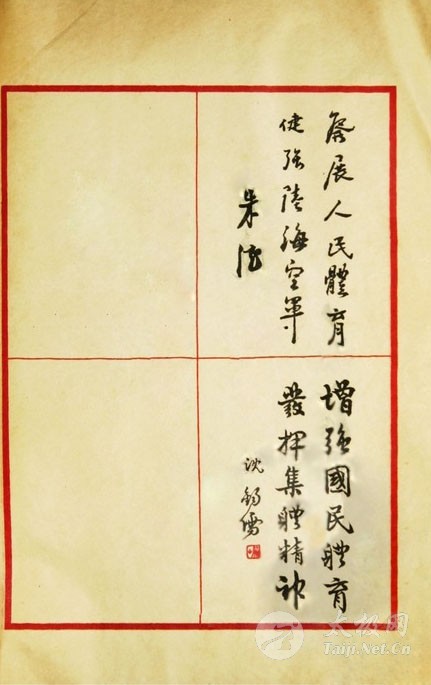 發展人民體育
健强陸海空軍
朱德
增强國民體育
發揮集體精神
沈鈞儒
太极网
Taiji.Net.Cn